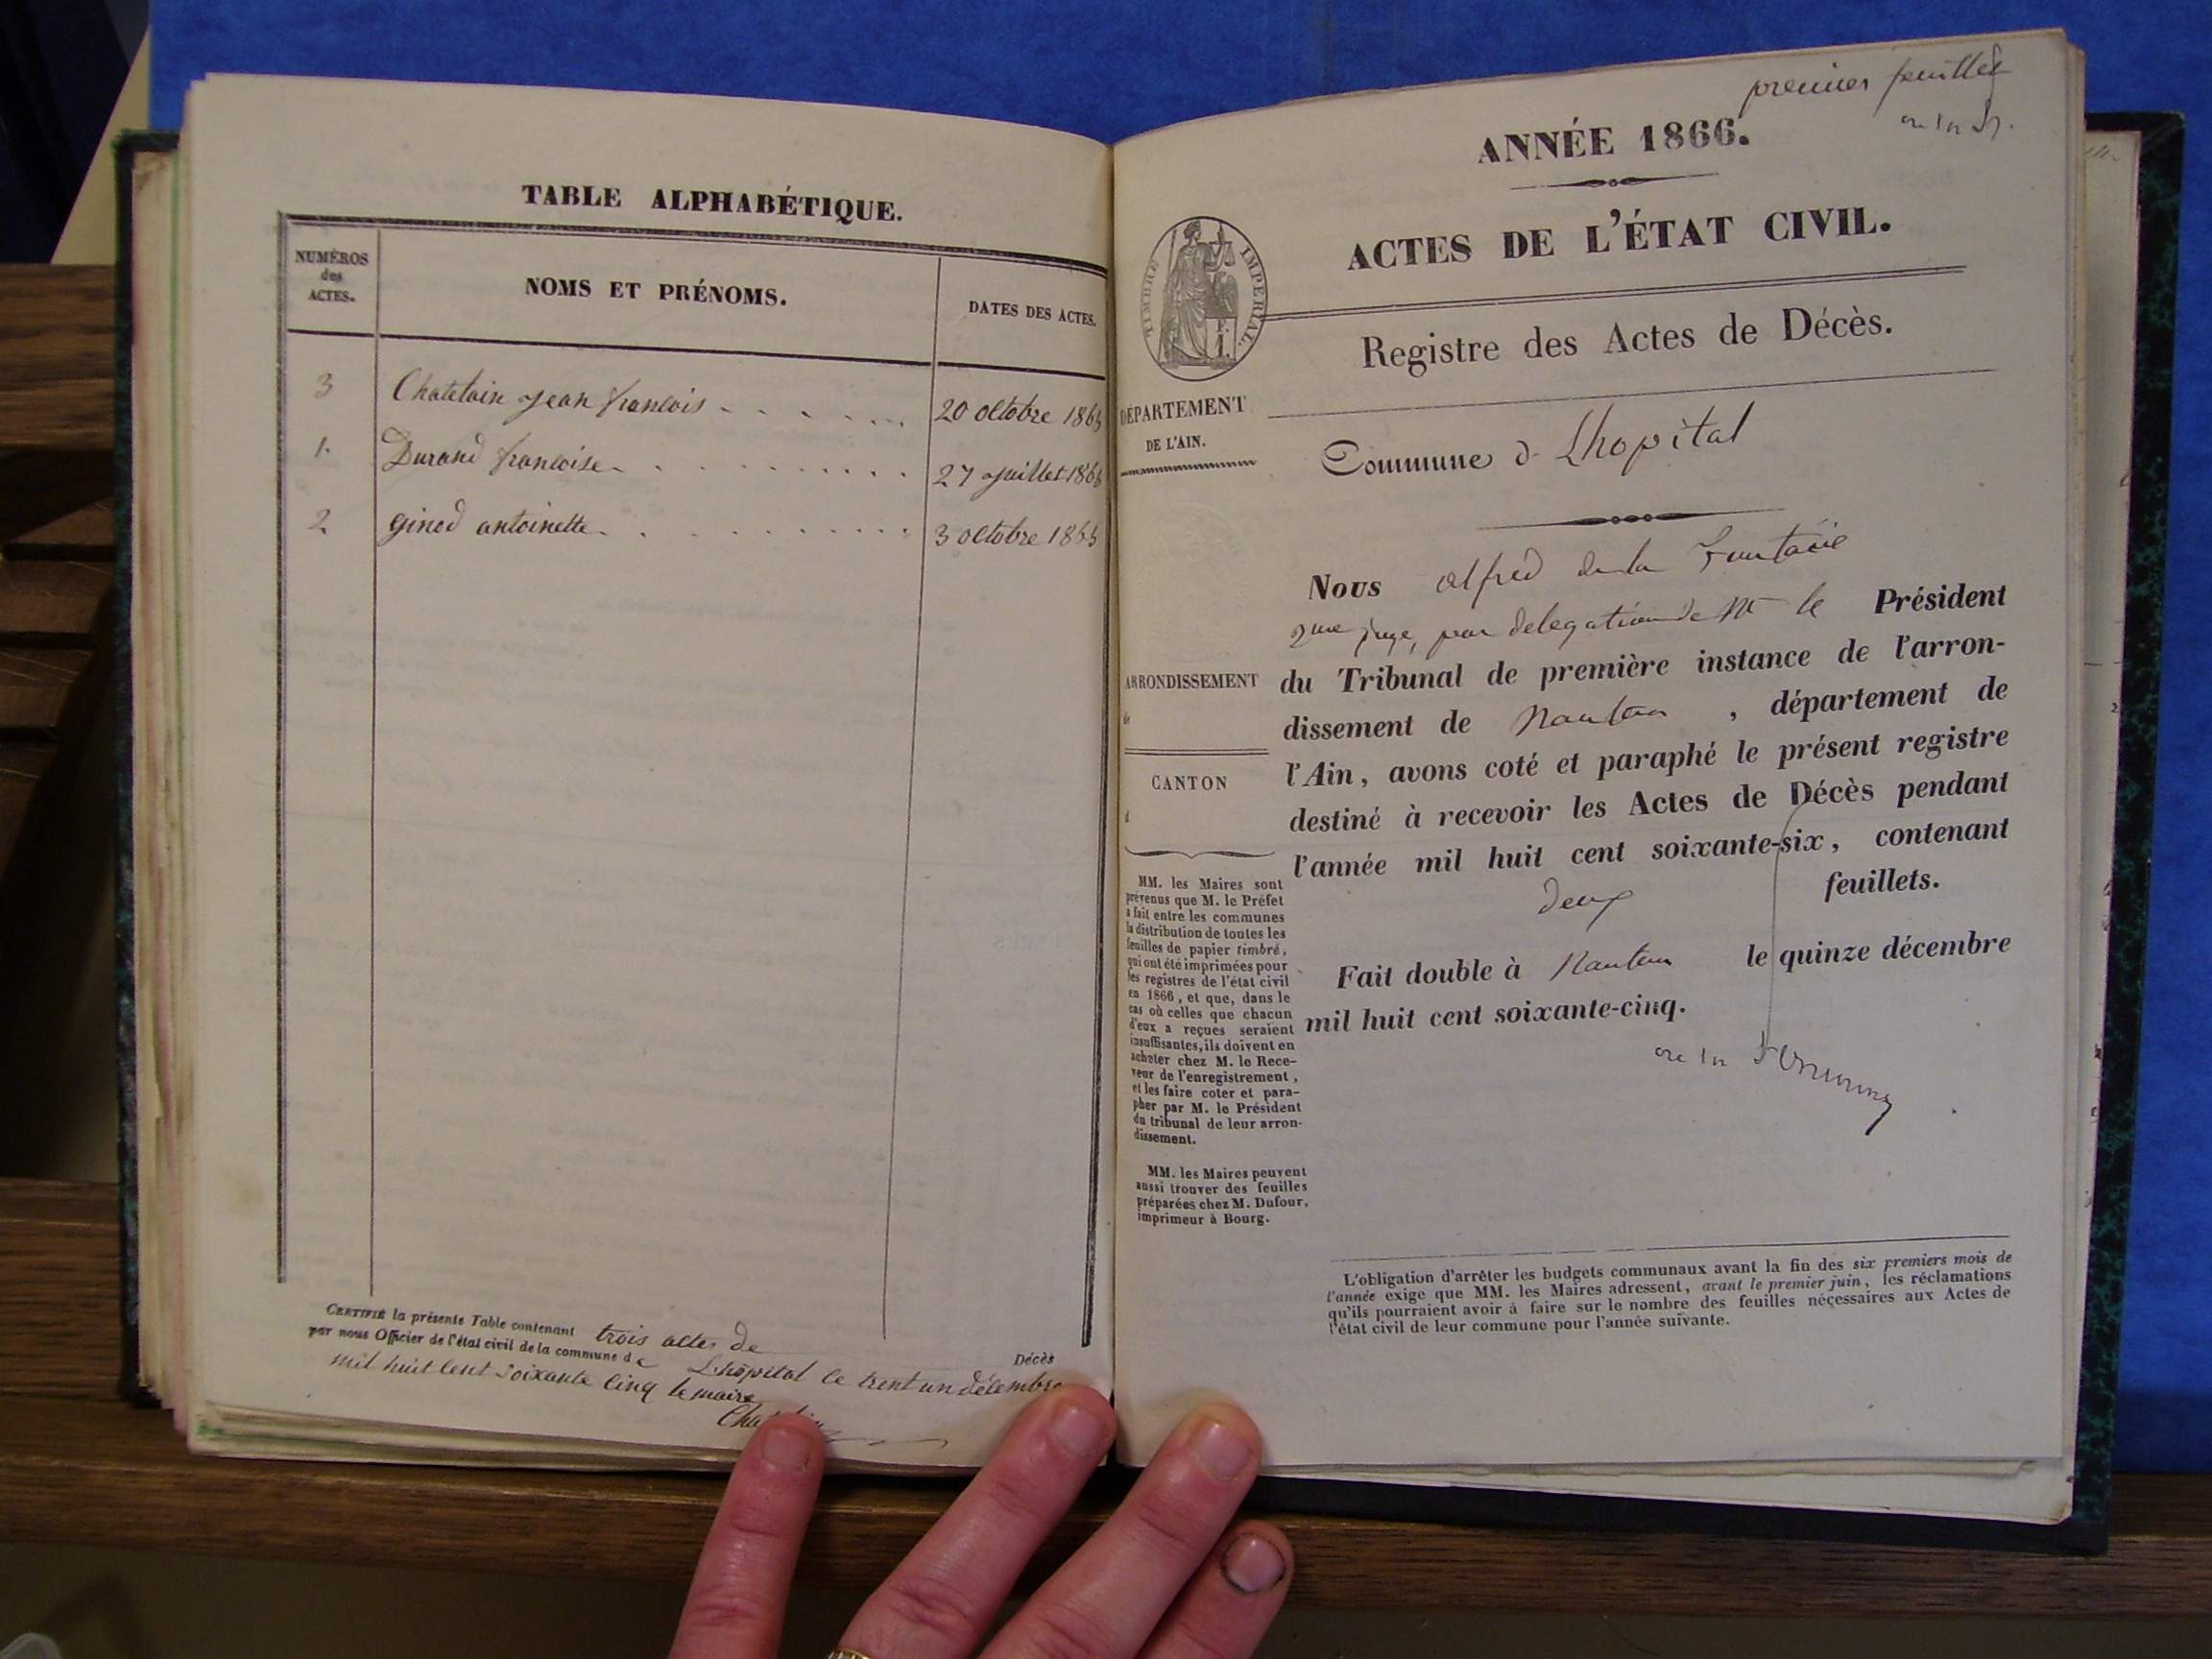 TABLE ALPHABÉTIQUE.
NUMÉROS
des
ACTES.
NOMS ET PRÉNOMS.
DATES DES ACTES.
3 Chatelain jean francois 20 octobre 1865
1. Durand francoise 27 juillet 1865
2 ginod antoinette 3 octobre 1865
CERTIFIÉ la présente Table contenant trois actes de Décès
par nous Officier de l'état civil de la commune de Lhôpital le trent un décembre
mil huit cent soixante cinq le maire
premier feuillet
ANNÉE 1866.
ACTES DE L'ÉTAT CIVIL.
TIMBRE IMPERIAL.
Registre des Actes de Décès.
DÉPARTEMENT
DE L'AIN.
Commune d Lhopital
Nous alfred de la
2me juge, par delegation de Mr le Président
ARRONDISSEMENT
de
du Tribunal de première instance de l'arron-
dissement de Nantua, département de
CANTON
d
l'Ain, avons coté et paraphé le présent registre
destiné à recevoir les Actes de Décès pendant
l'année mil huit cent soixante-six, contenant
deux feuillets.
Fait double à Nantua le quinze décembre
mil huit cent soixante-cinq.
MM. les Maires sont
prévenus que M. le Préfet
a fait entre les communes
la distribution de toutes les
feuilles de papier timbré,
qui ont été imprimées pour
les registres de l'état civil
en 1866, et que, dans le
cas où celles que chacun
d'eux a reçues seraient
insuffisantes, ils doivent en
acheter chez M. le Rece-
veur de l'enregistrement,
et les faire coter et para-
pher par M. le Président
du tribunal de leur arron-
dissement.
MM. les Maires peuvent
aussi trouver des feuilles
préparées chez M. Dufour,
imprimeur à Bourg.
L'obligation d'arrêter les budgets communaux avant la fin des six premiers mois de
l'année exige que MM. les Maires adressent, avant le premier juin, les réclamations
qu'ils pourraient avoir à faire sur le nombre des feuilles nécessaires aux Actes de
l'état civil de leur commune pour l'année suivante.